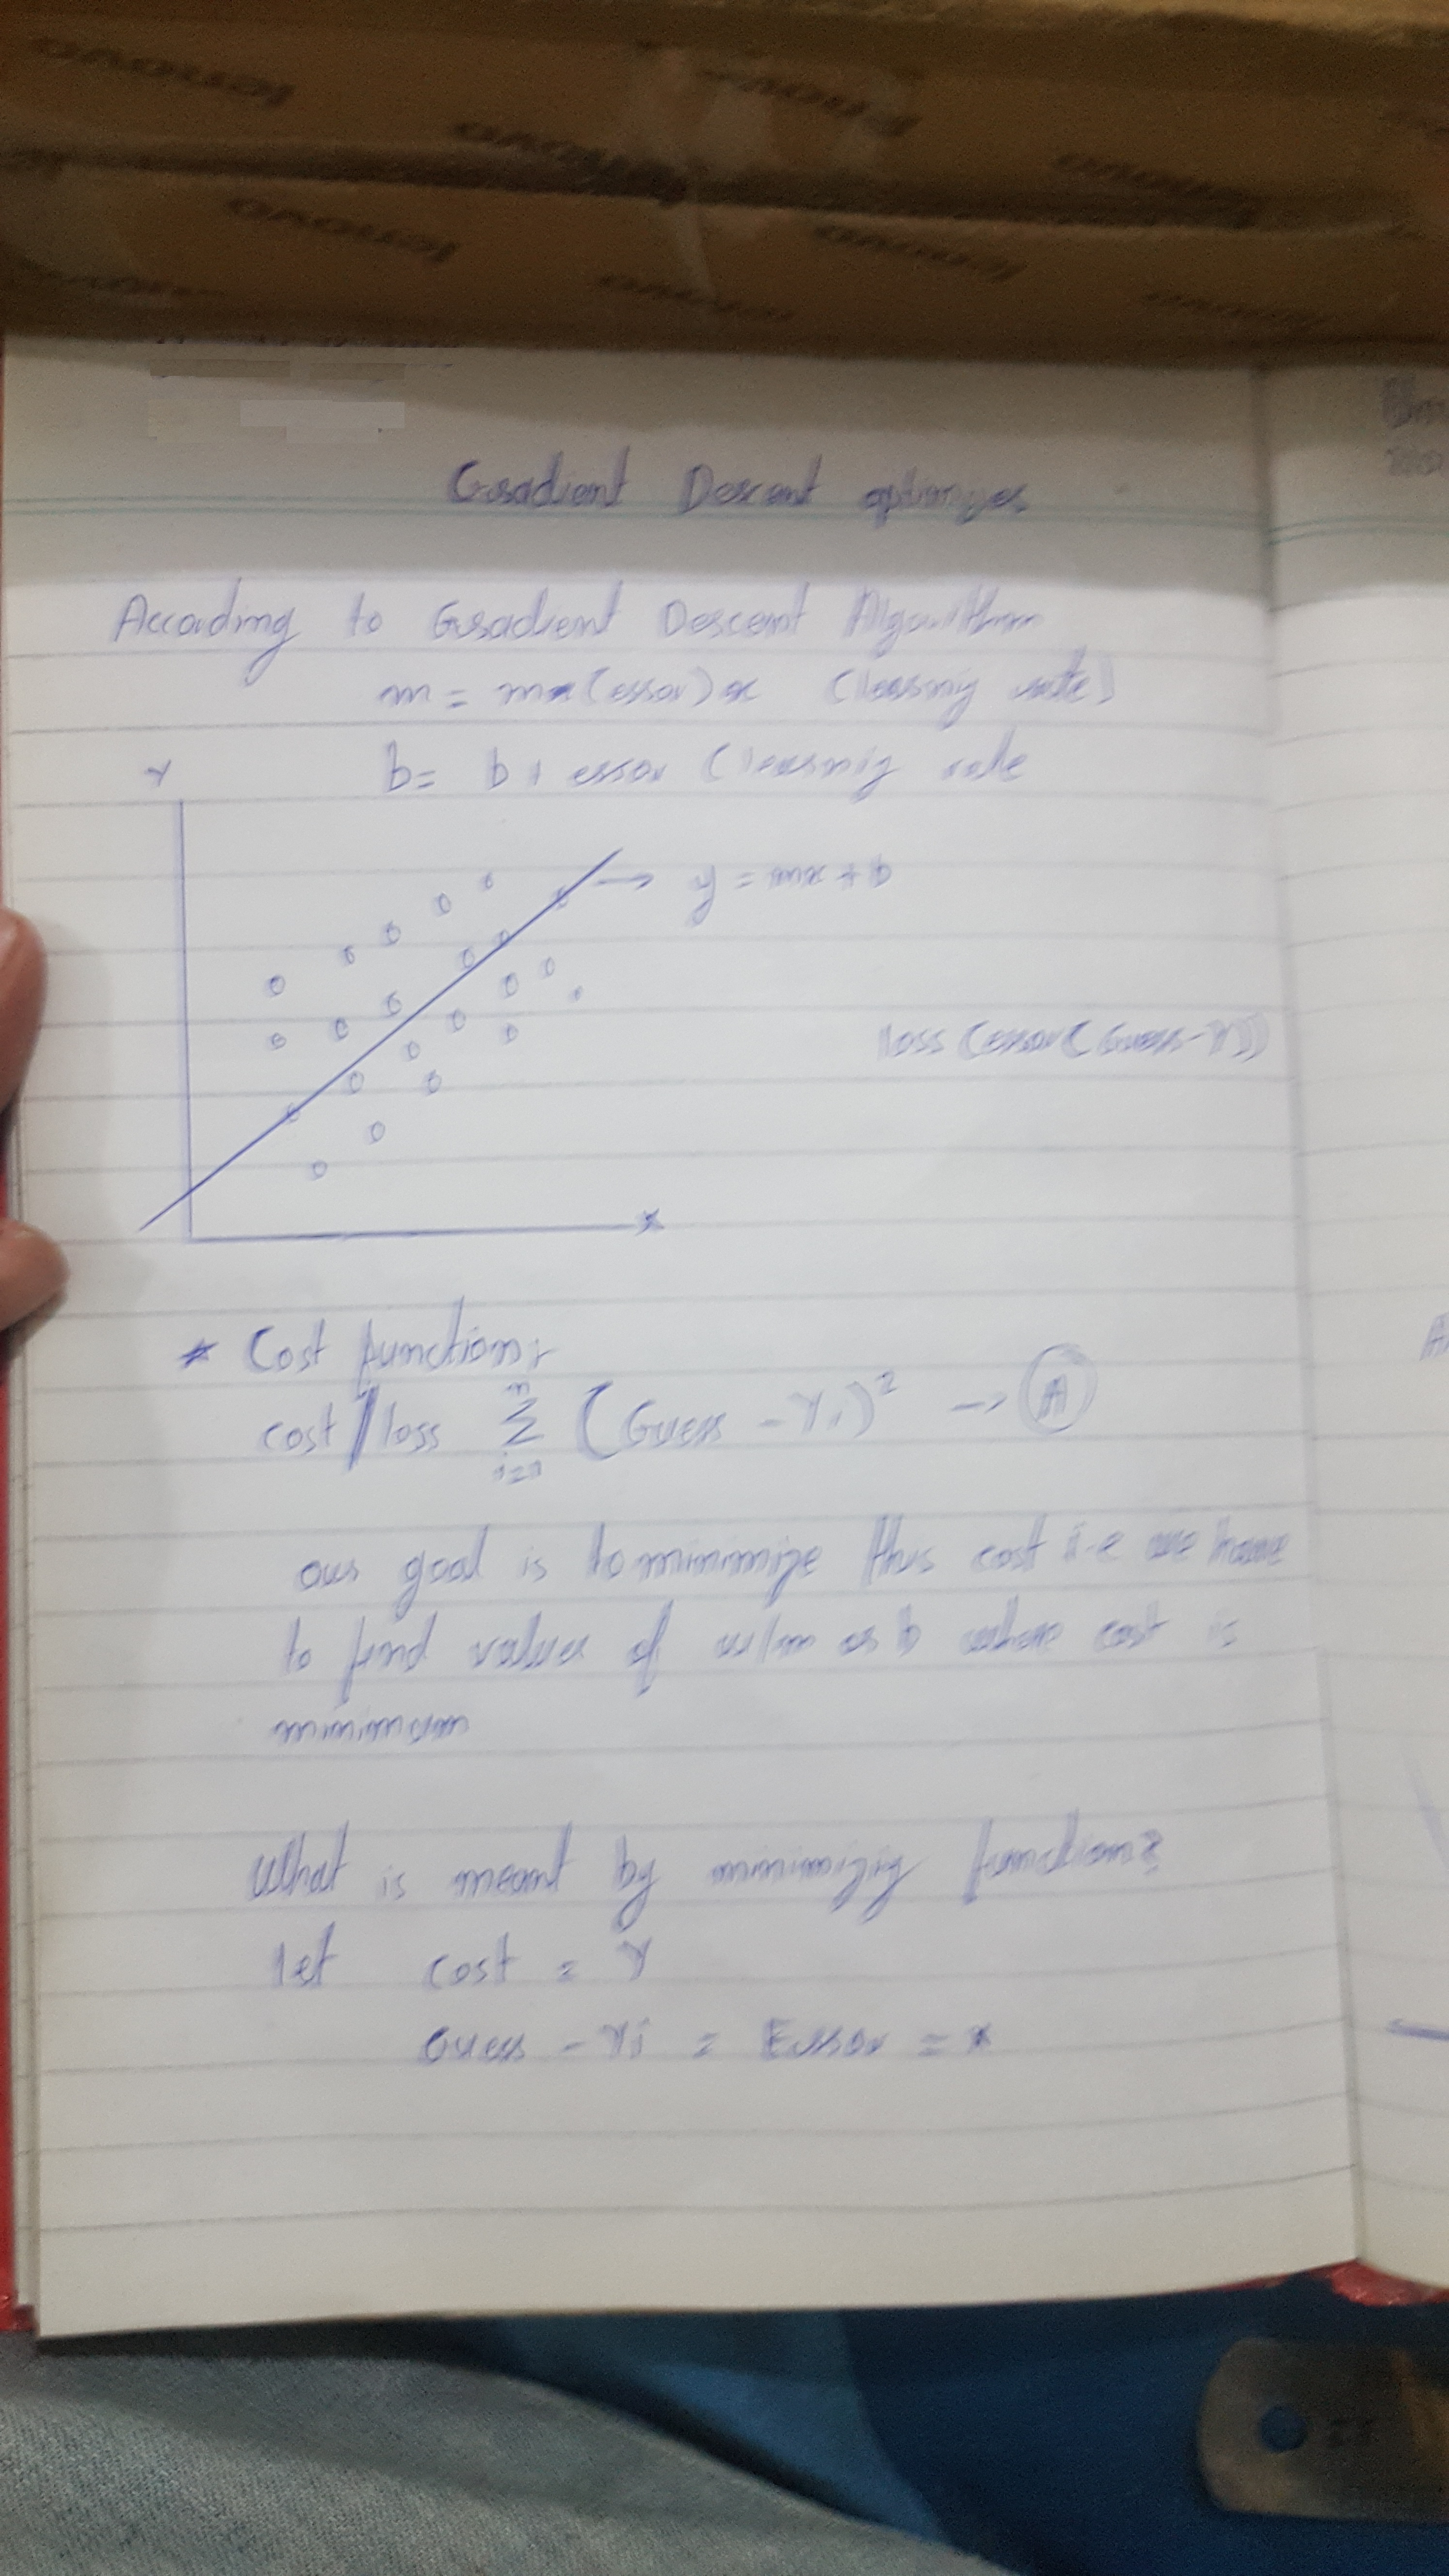 lenovo
lenovo
lenovo
lenovo
lenovo
lenovo
Gradient Descent optimizer
According to Gradient Descent Algorithm
m = m (error) x (learning rate)
b = b + error (learning rate
Y
y = mx + b
loss (error (Guess - Y))
x
* Cost function:
cost / loss n Σ i=1 (Guess - Yi)² → A
our goal is to minimize this cost i.e we have
to find value of w/m or b where cost is
minimum
What is meant by minimizig function?
let cost = Y
Guess - Yi = Error = x